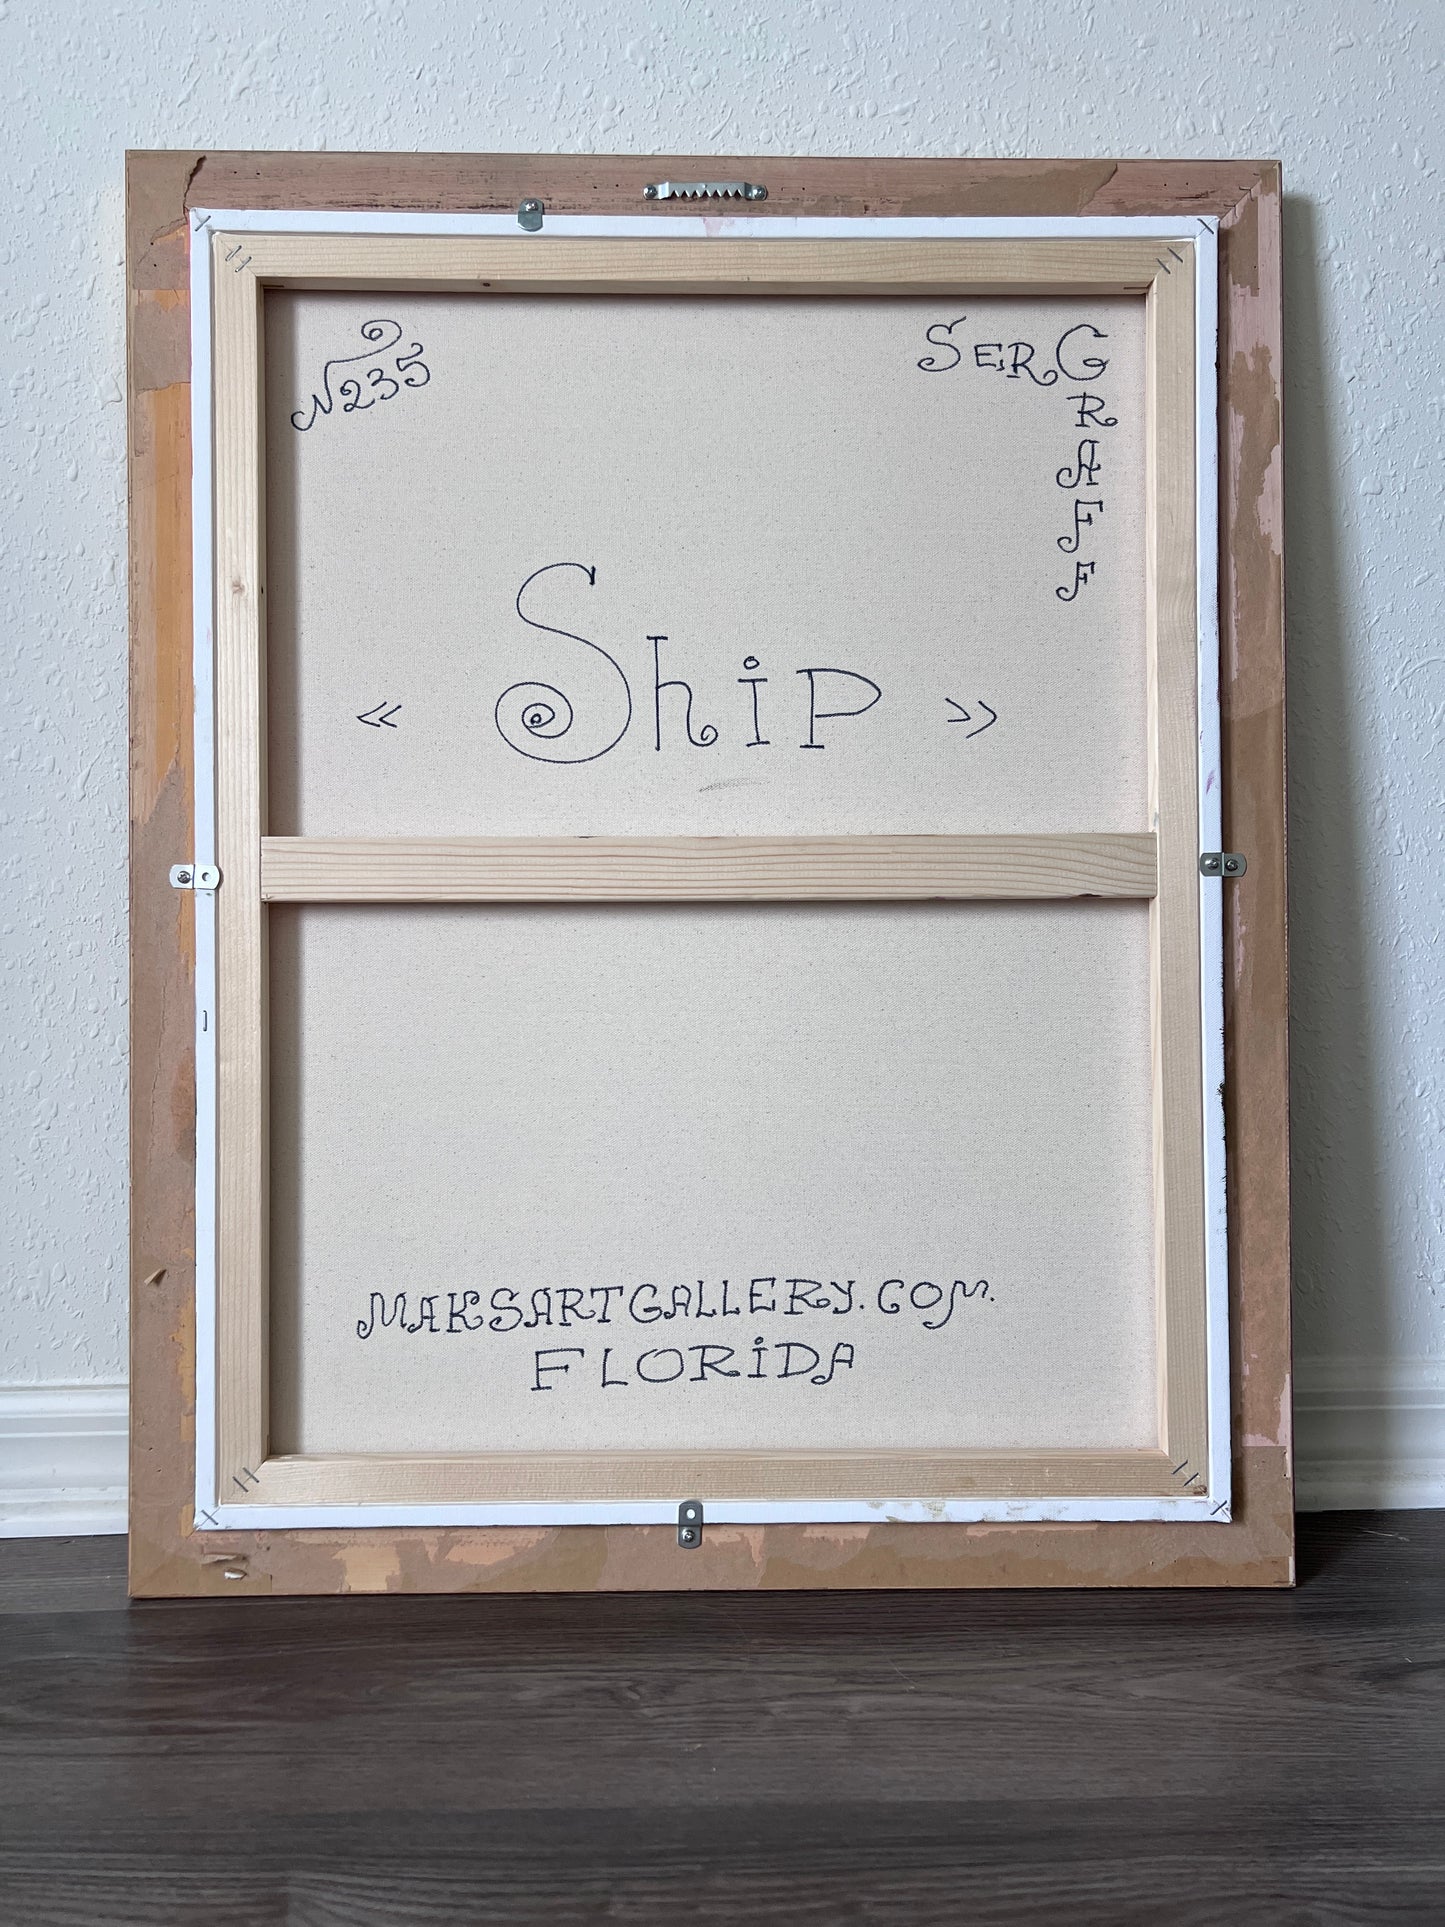 N235
SERGRAFF
« Ship »
MAKSARTGALLERY.COM.
FLORIDA